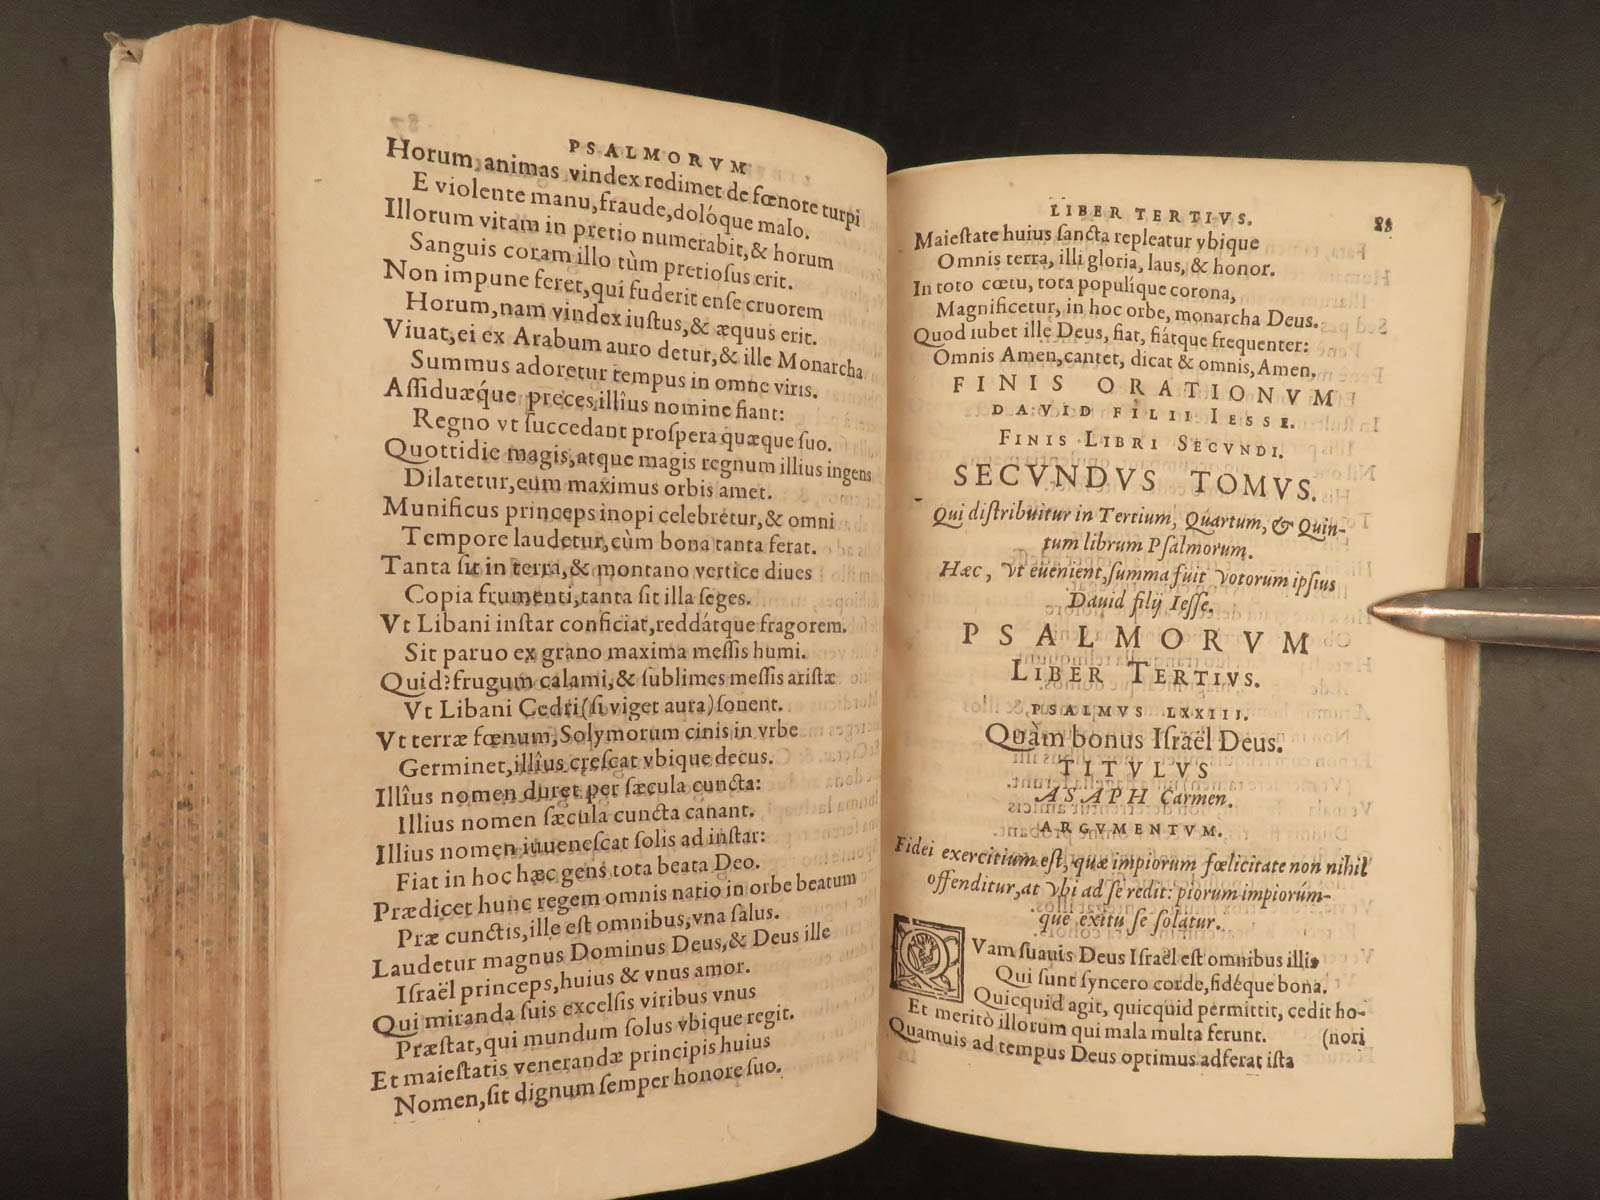 PSALMORVM
Horum animas vindex redimet de fœnore turpi
E violente manu, fraude, dolóque malo.
Illorum vitam in pretio numerabit, & horum
Sanguis coram illo tùm pretiosus erit.
Non impune feret, qui fuderit ense cruorem
Horum, nam vindex iustus, & æquus erit.
Viuat, ei ex Arabum auro detur, & ille Monarcha
Summus adoretur tempus in omne viris.
Assiduǽque preces illîus nomine fiant:
Regno vt succedant prospera quæque suo.
Quottidie magis, atque magis regnum illius ingens
Dilatetur, eum maximus orbis amet.
Munificus princeps inopi celebretur, & omni
Tempore laudetur, cùm bona tanta ferat.
Tanta sit in terra, & montano vertice diues
Copia frumenti, tanta sit illa seges.
Vt Libani instar conficiat, reddátque fragorem.
Sit paruo ex grano maxima messis humi.
Quid? frugum calami, & sublimes messis aristæ
Vt Libani Cedri (si viget aura) sonent.
Vt terræ fœnum, Solymorum cinis in vrbe
Germinet, illîus crescat vbique decus.
Illîus nomen duret per sæcula cuncta:
Illius nomen sæcula cuncta canant.
Illius nomen iuuenescat solis ad instar:
Fiat in hoc hæc gens tota beata Deo.
Prædicet hunc regem omnis natio in orbe beatum
Præ cunctis, ille est omnibus, vna salus.
Laudetur magnus Dominus Deus, & Deus ille
Israël princeps, huius & vnus amor.
Qui miranda suis excelsis viribus vnus
Præstat, qui mundum solus vbique regit.
Et maiestatis venerandæ principis huius
Nomen, sit dignum semper honore suo.
LIBER TERTIVS. 88
Maiestate huius sancta repleatur vbique
Omnis terra, illi gloria, laus, & honor.
In toto cœtu, tota populíque corona,
Magnificetur, in hoc orbe, monarcha Deus.
Quod iubet ille Deus, fiat, fiátque frequenter:
Omnis Amen, cantet, dicat & omnis, Amen.
FINIS ORATIONVM
DAVID FILII IESSE.
FINIS LIBRI SECVNDI.
SECVNDVS TOMVS.
Qui distribuitur in Tertium, Quartum, & Quin-
tum librum Psalmorum.
Hæc, vt eueniant, summa fuit votorum ipsius
Dauid filij Iesse.
PSALMORVM
LIBER TERTIVS.
PSALMVS LXXIII.
Quàm bonus Israël Deus.
TITVLVS
ASAPH Carmen.
ARGVMENTVM.
Fidei exercitium est, quæ impiorum fœlicitate non nihil
offenditur, at vbi ad se redit: piorum impiorúm-
que exitu se solatur.
QVam suauis Deus Israël est omnibus illis
Qui sunt syncero corde, fidéque bona.
Quicquid agit, quicquid permittit, cedit ho-
Et meritò illorum qui mala multa ferunt. (nori
Quamuis ad tempus Deus optimus adferat ista